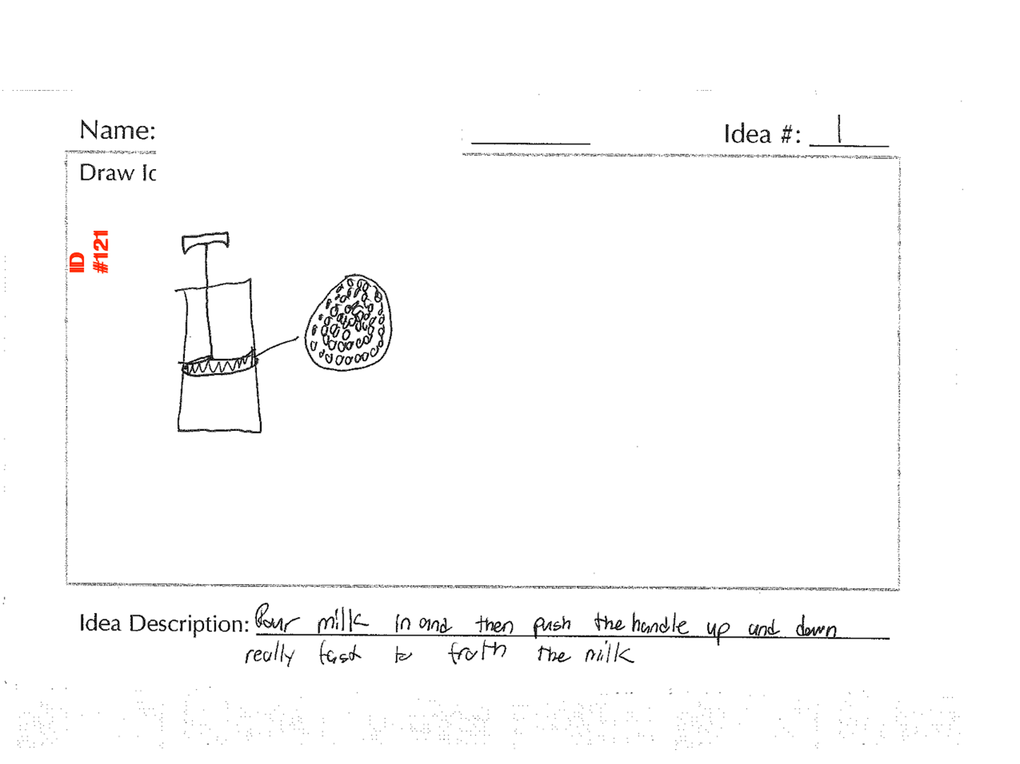 Name:
Idea #: 1
Draw Ic
ID #121
Idea Description: Pour milk in and then push the handle up and down
really fast to froth the milk